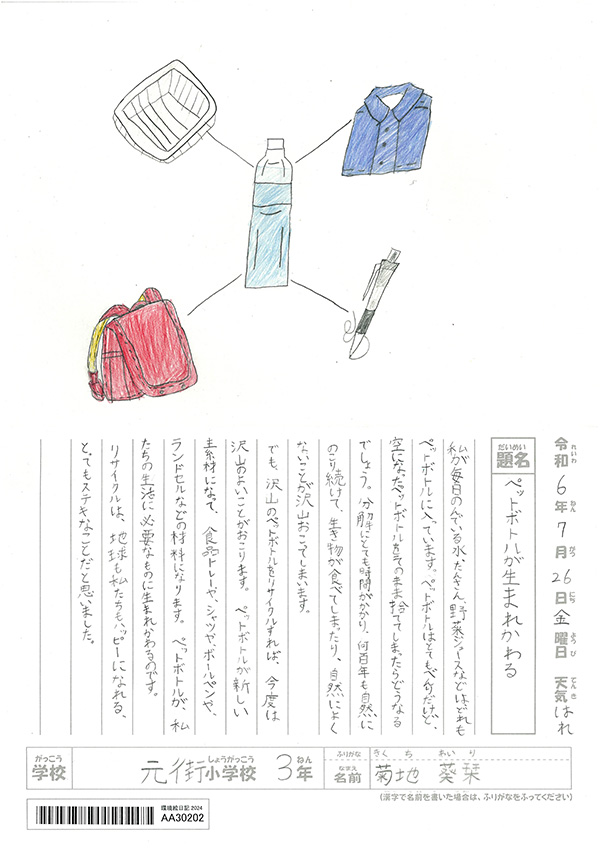 令和6年7月26日金曜日 天気はれ
れいわ ねん がつ にち ようび てんき
題名 ペットボトルが生まれかわる
だいめい
私が毎日のんでいる水、たんさん、野菜ジュースなどはどれも
ペットボトルに入っています。ペットボトルはとてもべんりだけど、
空になったペットボトルをそのまま捨ててしまったらどうなる
でしょう。分解にとても時間がかかり、何百年も自然に
のこり続けて、生き物が食べてしまったり、自然によく
ないことが沢山おこてしまいます。
でも、沢山のペットボトルをリサイクルすれば、今度は
沢山のよいことがおこります。ペットボトルが新しい
生素材になって、食品トレーや、シャツや、ボールペンや、
ランドセルなどの材料になります。ペットボトルが、私
たちの生活に必要なものに生まれかわるのです。
リサイクルは、地球も私たちもハッピーになれる、
とてもステキなことだと思いました。
がっこう しょうがっこう ねん ふりがな きくち あいり
学校 元街小学校 3年 名前 菊地 葵栞
なまえ
(漢字で名前を書いた場合は、ふりがなをふってください)
環境絵日記 2024
AA30202